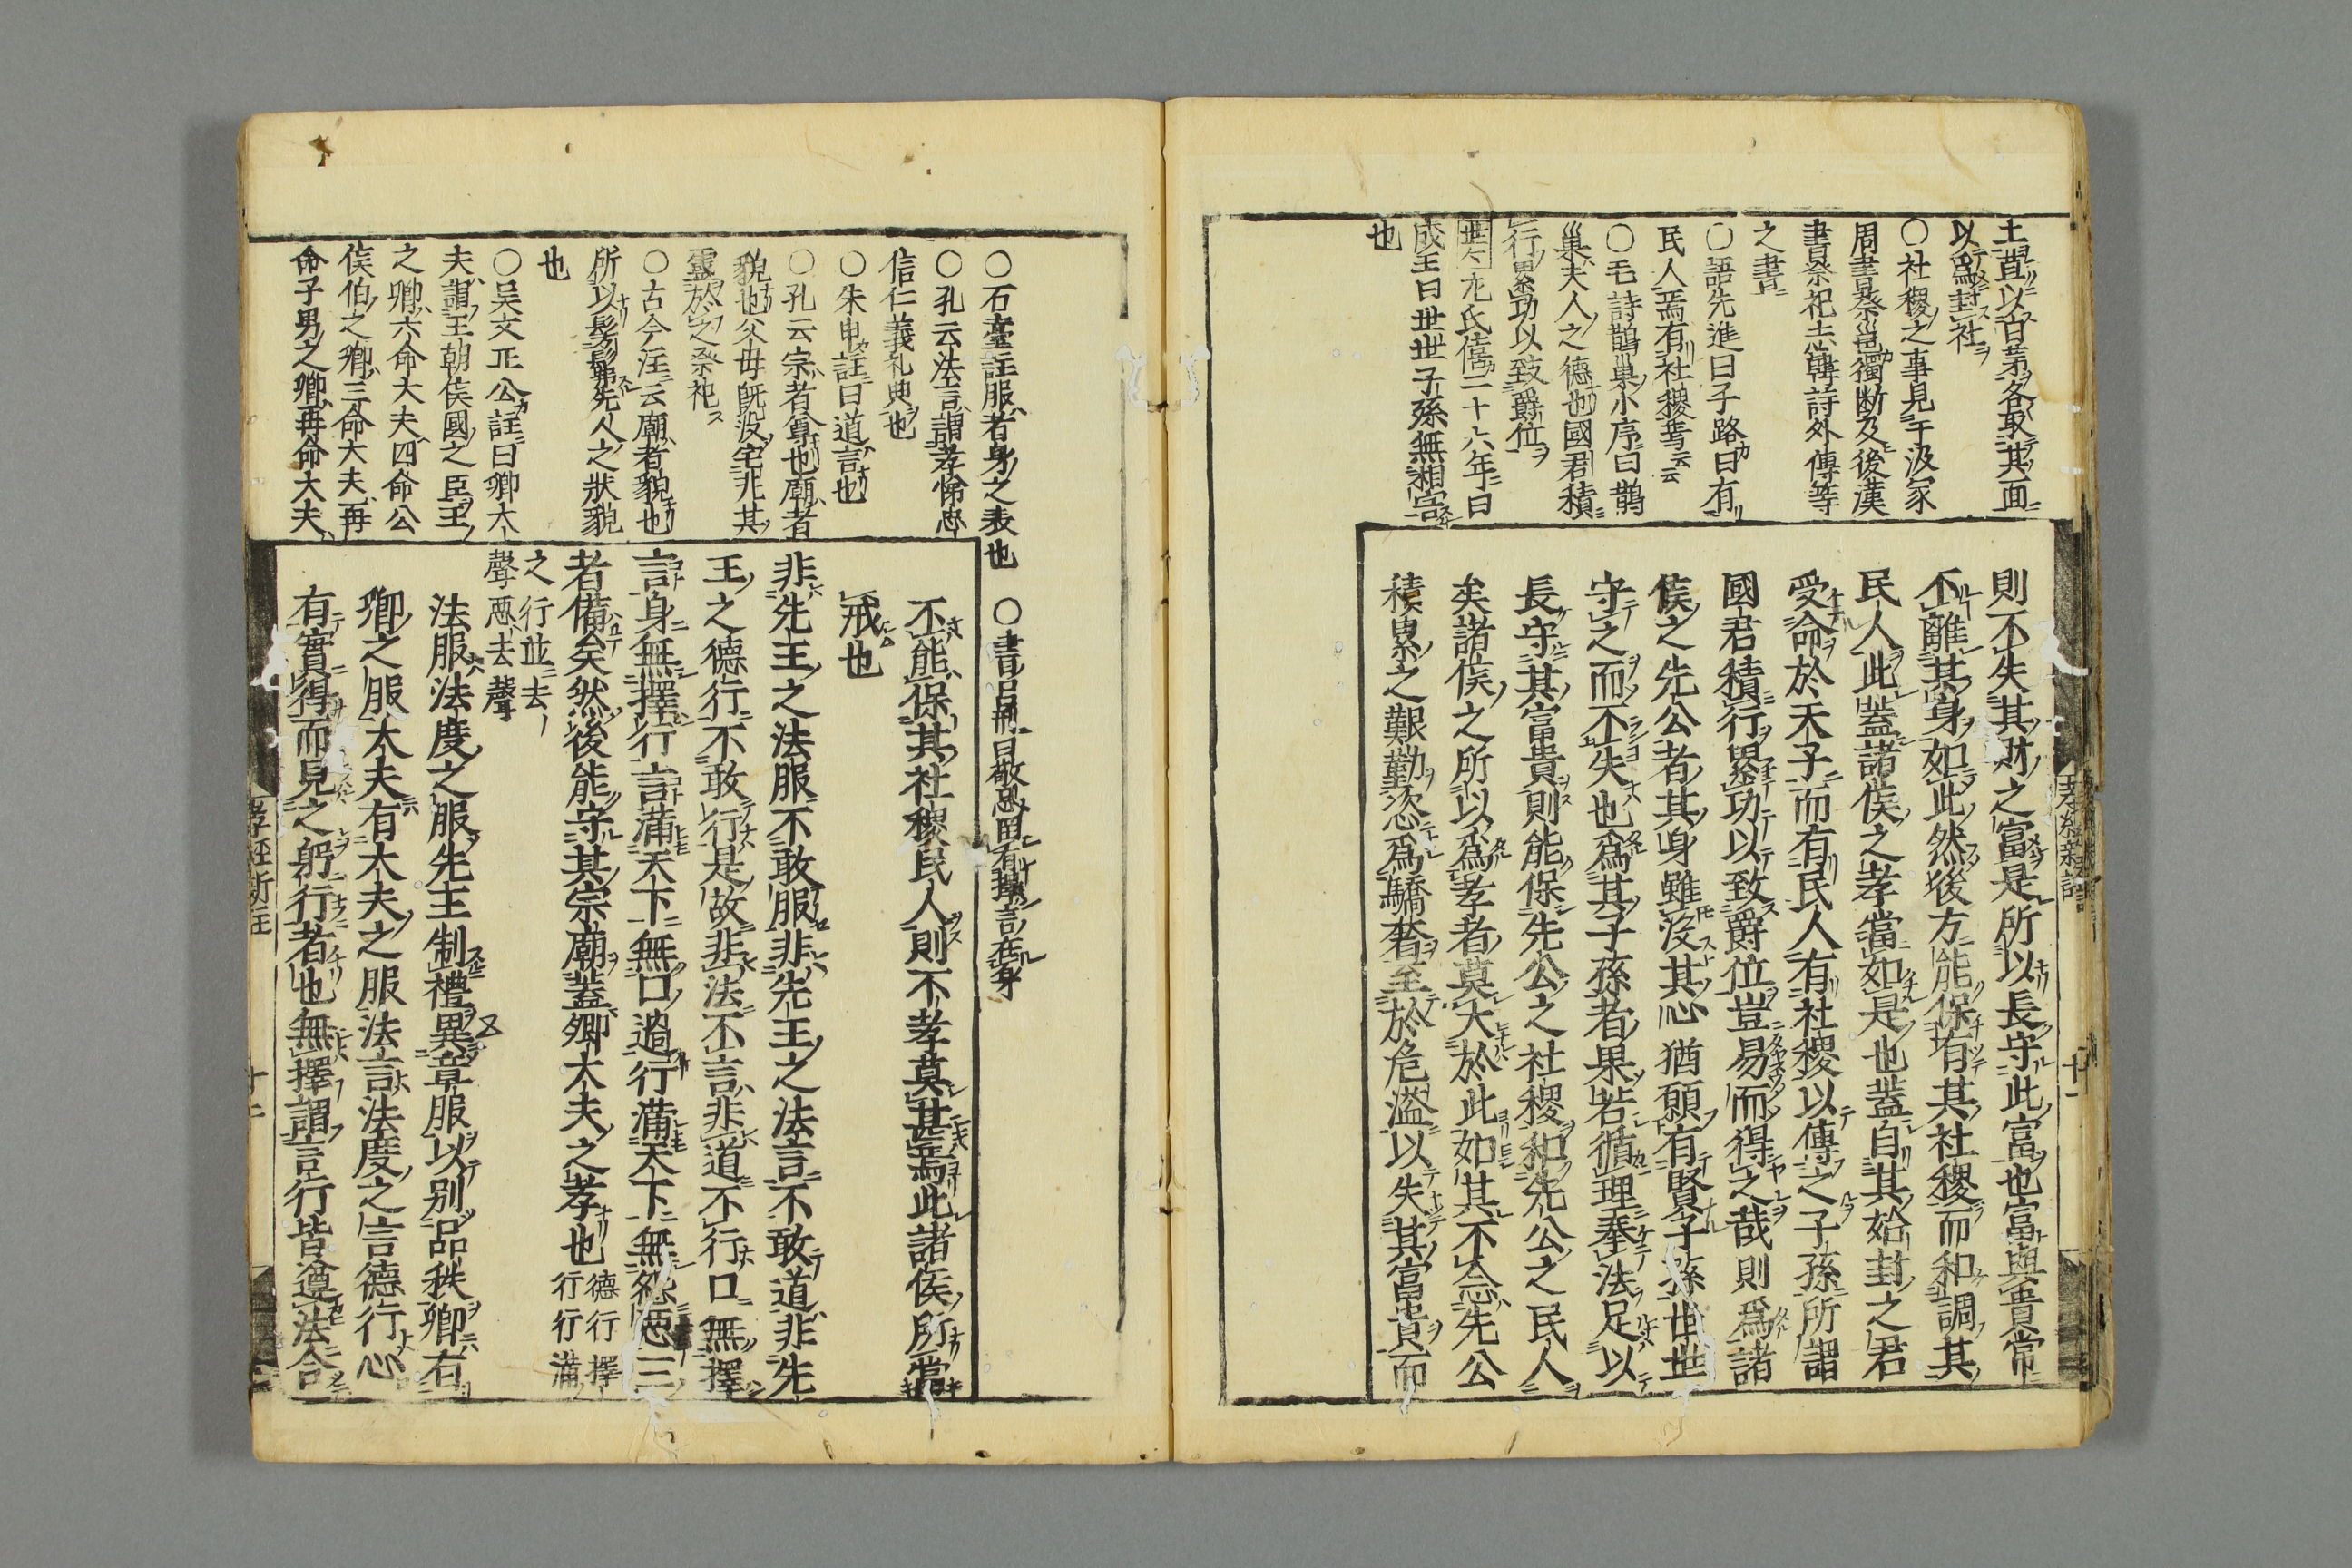 土苴以白茅各取其面
以爲封社
○社稷之事見于汲冢
周書蔡邕獨断及後漢
書祭祀志韓詩外傳等
之書
○語先進曰子路曰有
民人焉有社稷焉云云
○毛詩鵲巢小序曰鵲
巢夫人之德也國君積
行累功以致爵位
世々左氏僖二十六年曰
成王曰世世子孫無相害
也
則不失其財之富是所以長守此富也富與貴常
不離其身如此然後方能保有其社稷而和調其
民人此蓋諸侯之孝當如是也蓋自其始封之君
受命於天子而有民人有社稷以傳之子孫所謂
國君積行累功以致爵位豈易而得之哉則爲諸
侯之先公者其身雖沒其心猶願有賢子孫世世
守之而不失也爲其子孫者果若循理奉法足以
長守其富貴則能保先公之社稷和先公之民人
矣諸侯之所以爲孝者莫大於此如其不念先公
積累之艱勤恣爲驕奢至於危溢以失其富貴而
孝經新註
十一
○石臺註服者身之表也
○孔云法言謂孝悌忠
信仁義礼典也
○朱申註曰道言也
○孔云宗者尊也廟者
貌也父母既没宅非其
靈於之祭祀
○古今注云廟者貌也
所以髣髴先人之狀貌
也
○吴文正公註曰卿大
夫謂王朝侯國之臣王
之卿六命大夫四命公
侯伯之卿三命大夫再
命子男之卿再命大夫
○書呂刑曰敬忌罔有擇言在身
不能保其社稷民人則不孝莫甚焉此諸侯所當
戒也
非先王之法服不敢服非先王之法言不敢道非先
王之德行不敢行是故非法不言非道不行口無擇
言身無擇行言滿天下無口過行滿天下無怨惡三
者備矣然後能守其宗廟蓋卿大夫之孝也
德行擇
行行滿
之行並去
聲惡去聲
法服法度之服先王制禮異章服以别品秩卿有
卿之服大夫有大夫之服法言法度之言德行心
有實得而見之躬行者也無擇謂言行皆遵法合
孝經新註
十二